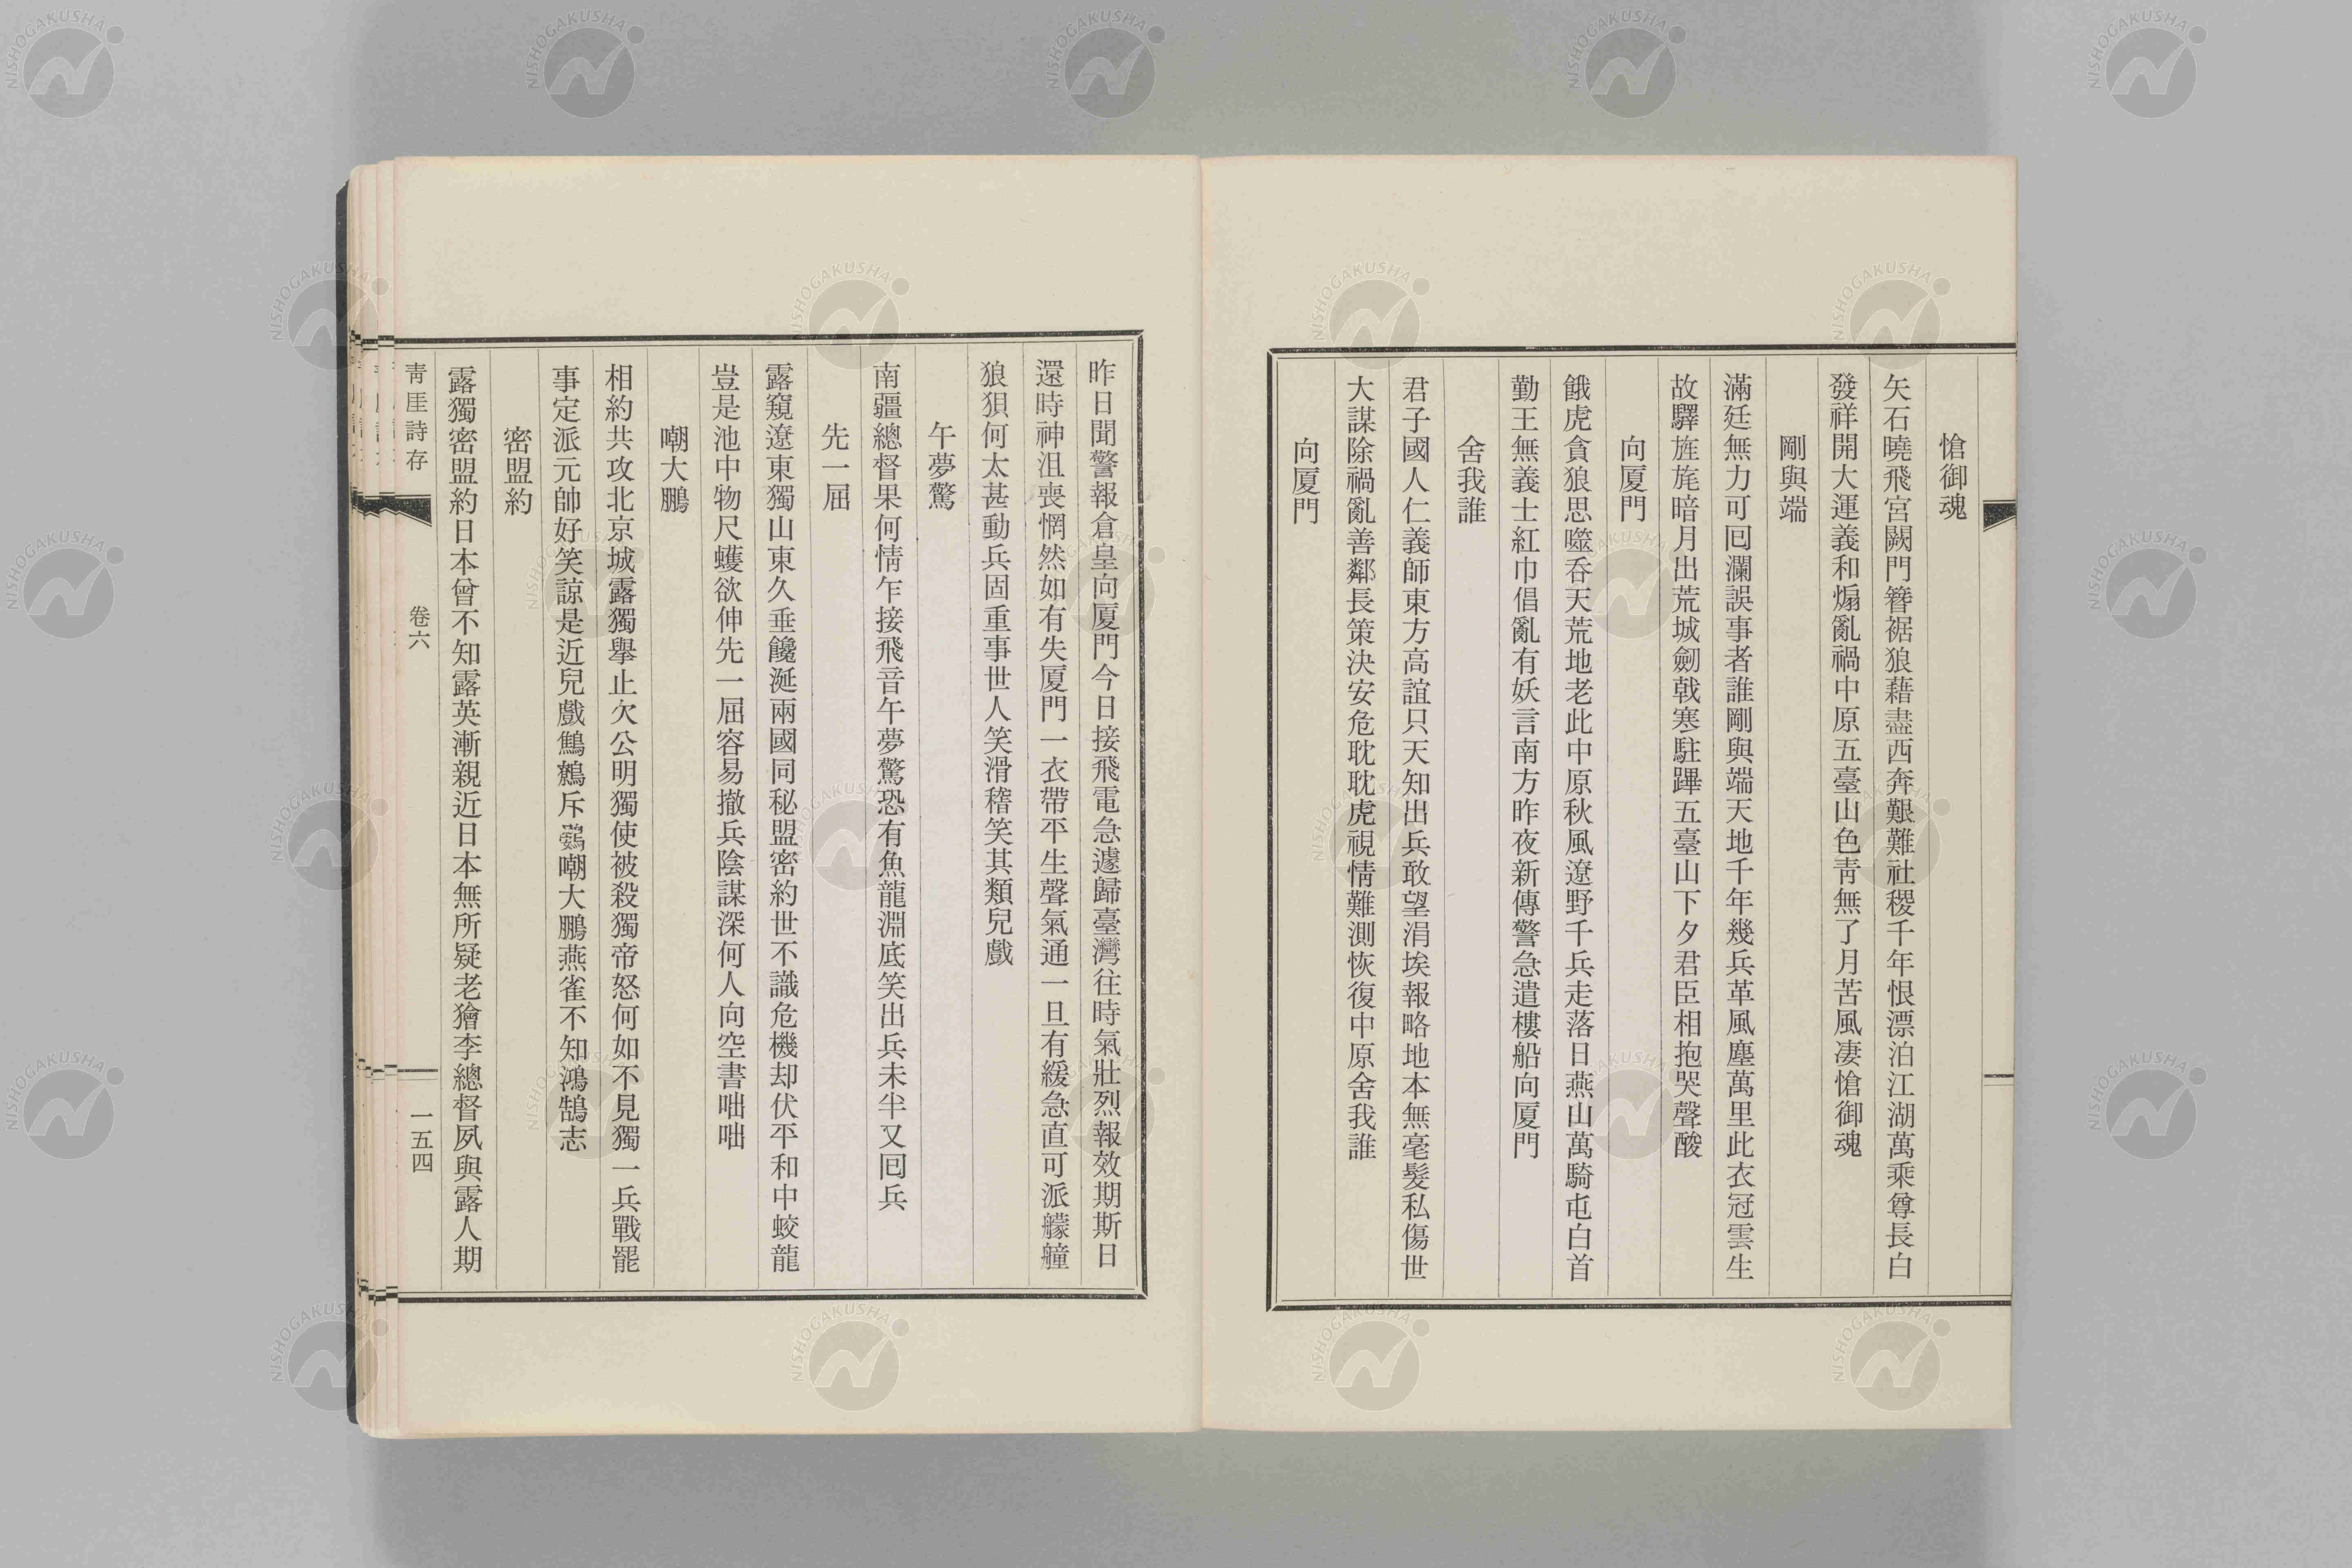 愴御魂
矢石曉飛宮闕門簪裾狼藉盡西奔艱難社稷千年恨漂泊江湖萬乘尊長白
發祥開大運義和煽亂禍中原五臺山色靑無了月苦風凄愴御魂
剛與端
滿廷無力可回瀾誤事者誰剛與端天地千年幾兵革風塵萬里此衣冠雲生
故驛旌旄暗月出荒城劒戟寒駐蹕五臺山下夕君臣相抱哭聲酸
向厦門
餓虎貪狼思噬呑天荒地老此中原秋風遼野千兵走落日燕山萬騎屯白首
勤王無義士紅巾倡亂有妖言南方昨夜新傳警急遣樓船向厦門
舍我誰
君子國人仁義師東方高誼只天知出兵敢望涓埃報略地本無毫髮私傷世
大謀除禍亂善鄰長策決安危耽耽虎視情難測恢復中原舍我誰
向厦門
昨日聞警報倉皇向厦門今日接飛電急遽歸臺灣往時氣壯烈報效期斯日
還時神沮喪惘然如有失厦門一衣帶平生聲氣通一旦有緩急直可派艨艟
狼狽何太甚動兵固重事世人笑滑稽笑其類兒戲
午夢驚
南疆總督果何情乍接飛音午夢驚恐有魚龍淵底笑出兵未半又回兵
先一屈
露窺遼東獨山東久垂饞涎兩國同秘盟密約世不識危機却伏平和中蛟龍
豈是池中物尺蠖欲伸先一屈容易撤兵陰謀深何人向空書咄咄
嘲大鵬
相約共攻北京城露獨擧止欠公明獨使被殺獨帝怒何如不見獨一兵戰罷
事定派元帥好笑諒是近兒戲鷦鷯斥鷃嘲大鵬燕雀不知鴻鵠志
密盟約
露獨密盟約日本曾不知露英漸親近日本無所疑老獪李總督夙與露人期
靑厓詩存
卷六
一五四
NISHOGAKUSHA